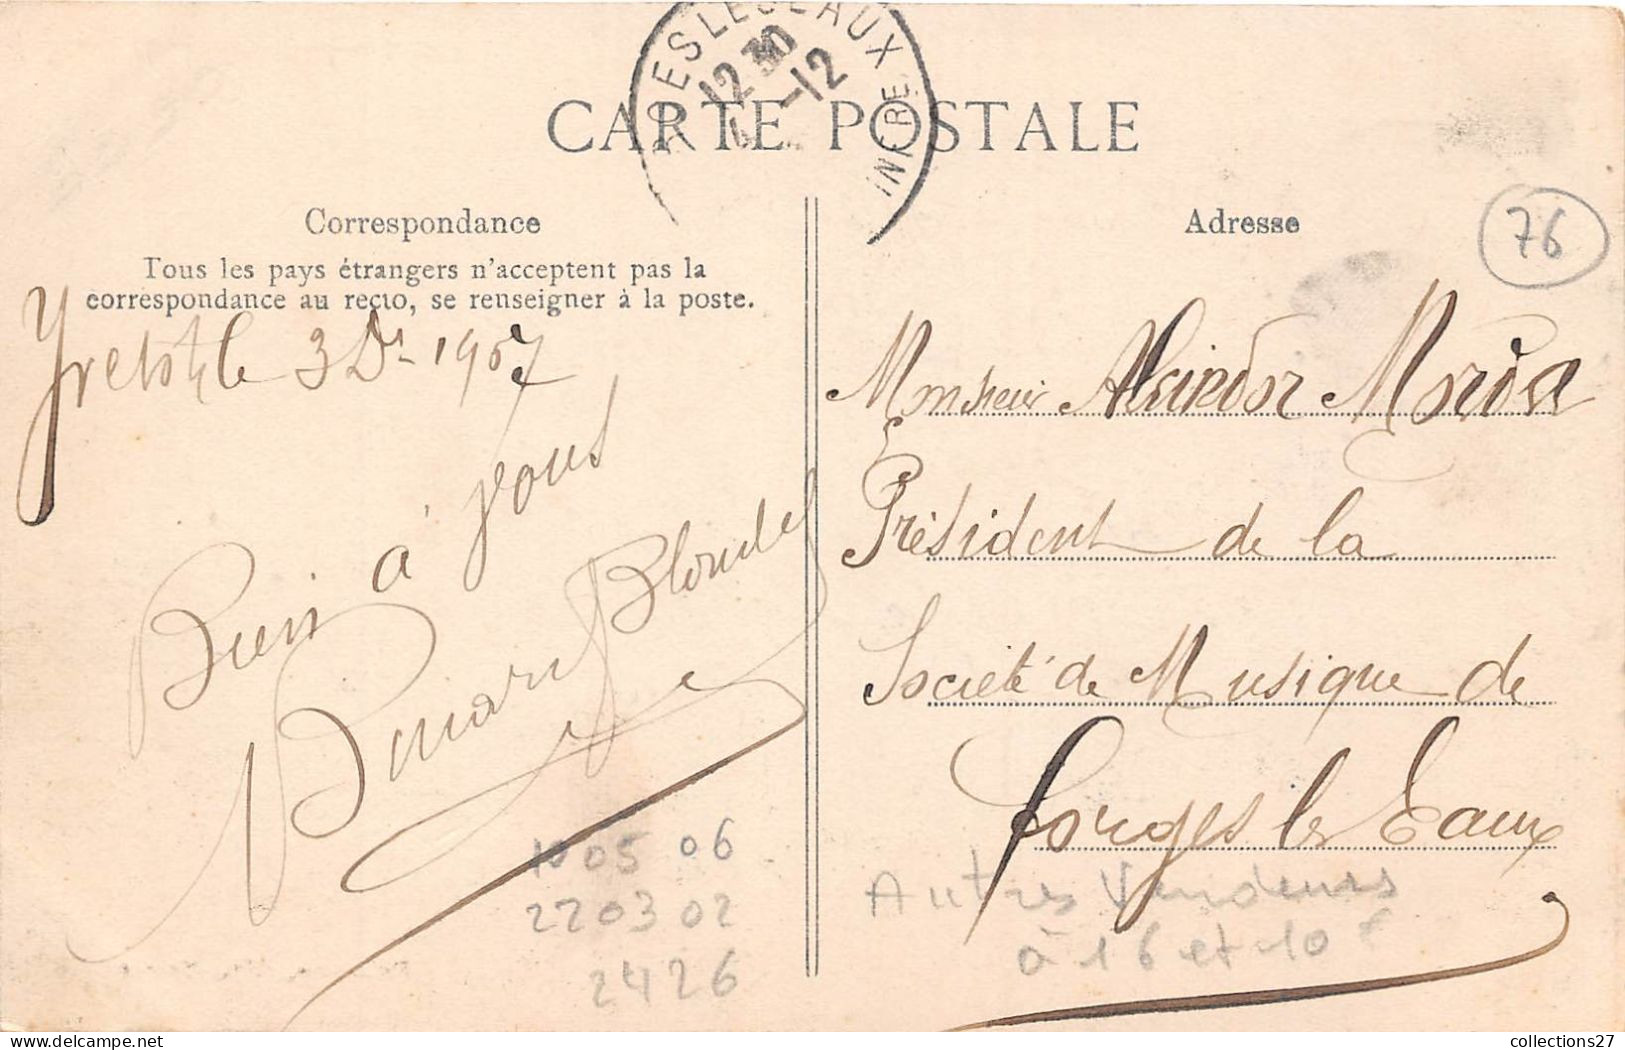 GES LES EAUX
INFRE
12 30
-12
CARTE POSTALE
Correspondance
Tous les pays étrangers n'acceptent pas la
correspondance au recto, se renseigner à la poste.
Yvetot, le 3 Dr 1907
Bien à vous
Blondel
10 05 06
22 03 02
24 26
Adresse
76
Monsieur
Président de la
Société de Musique de
Forges les Eaux
Autres Vendeurs
à 16 et 10 €
collections27